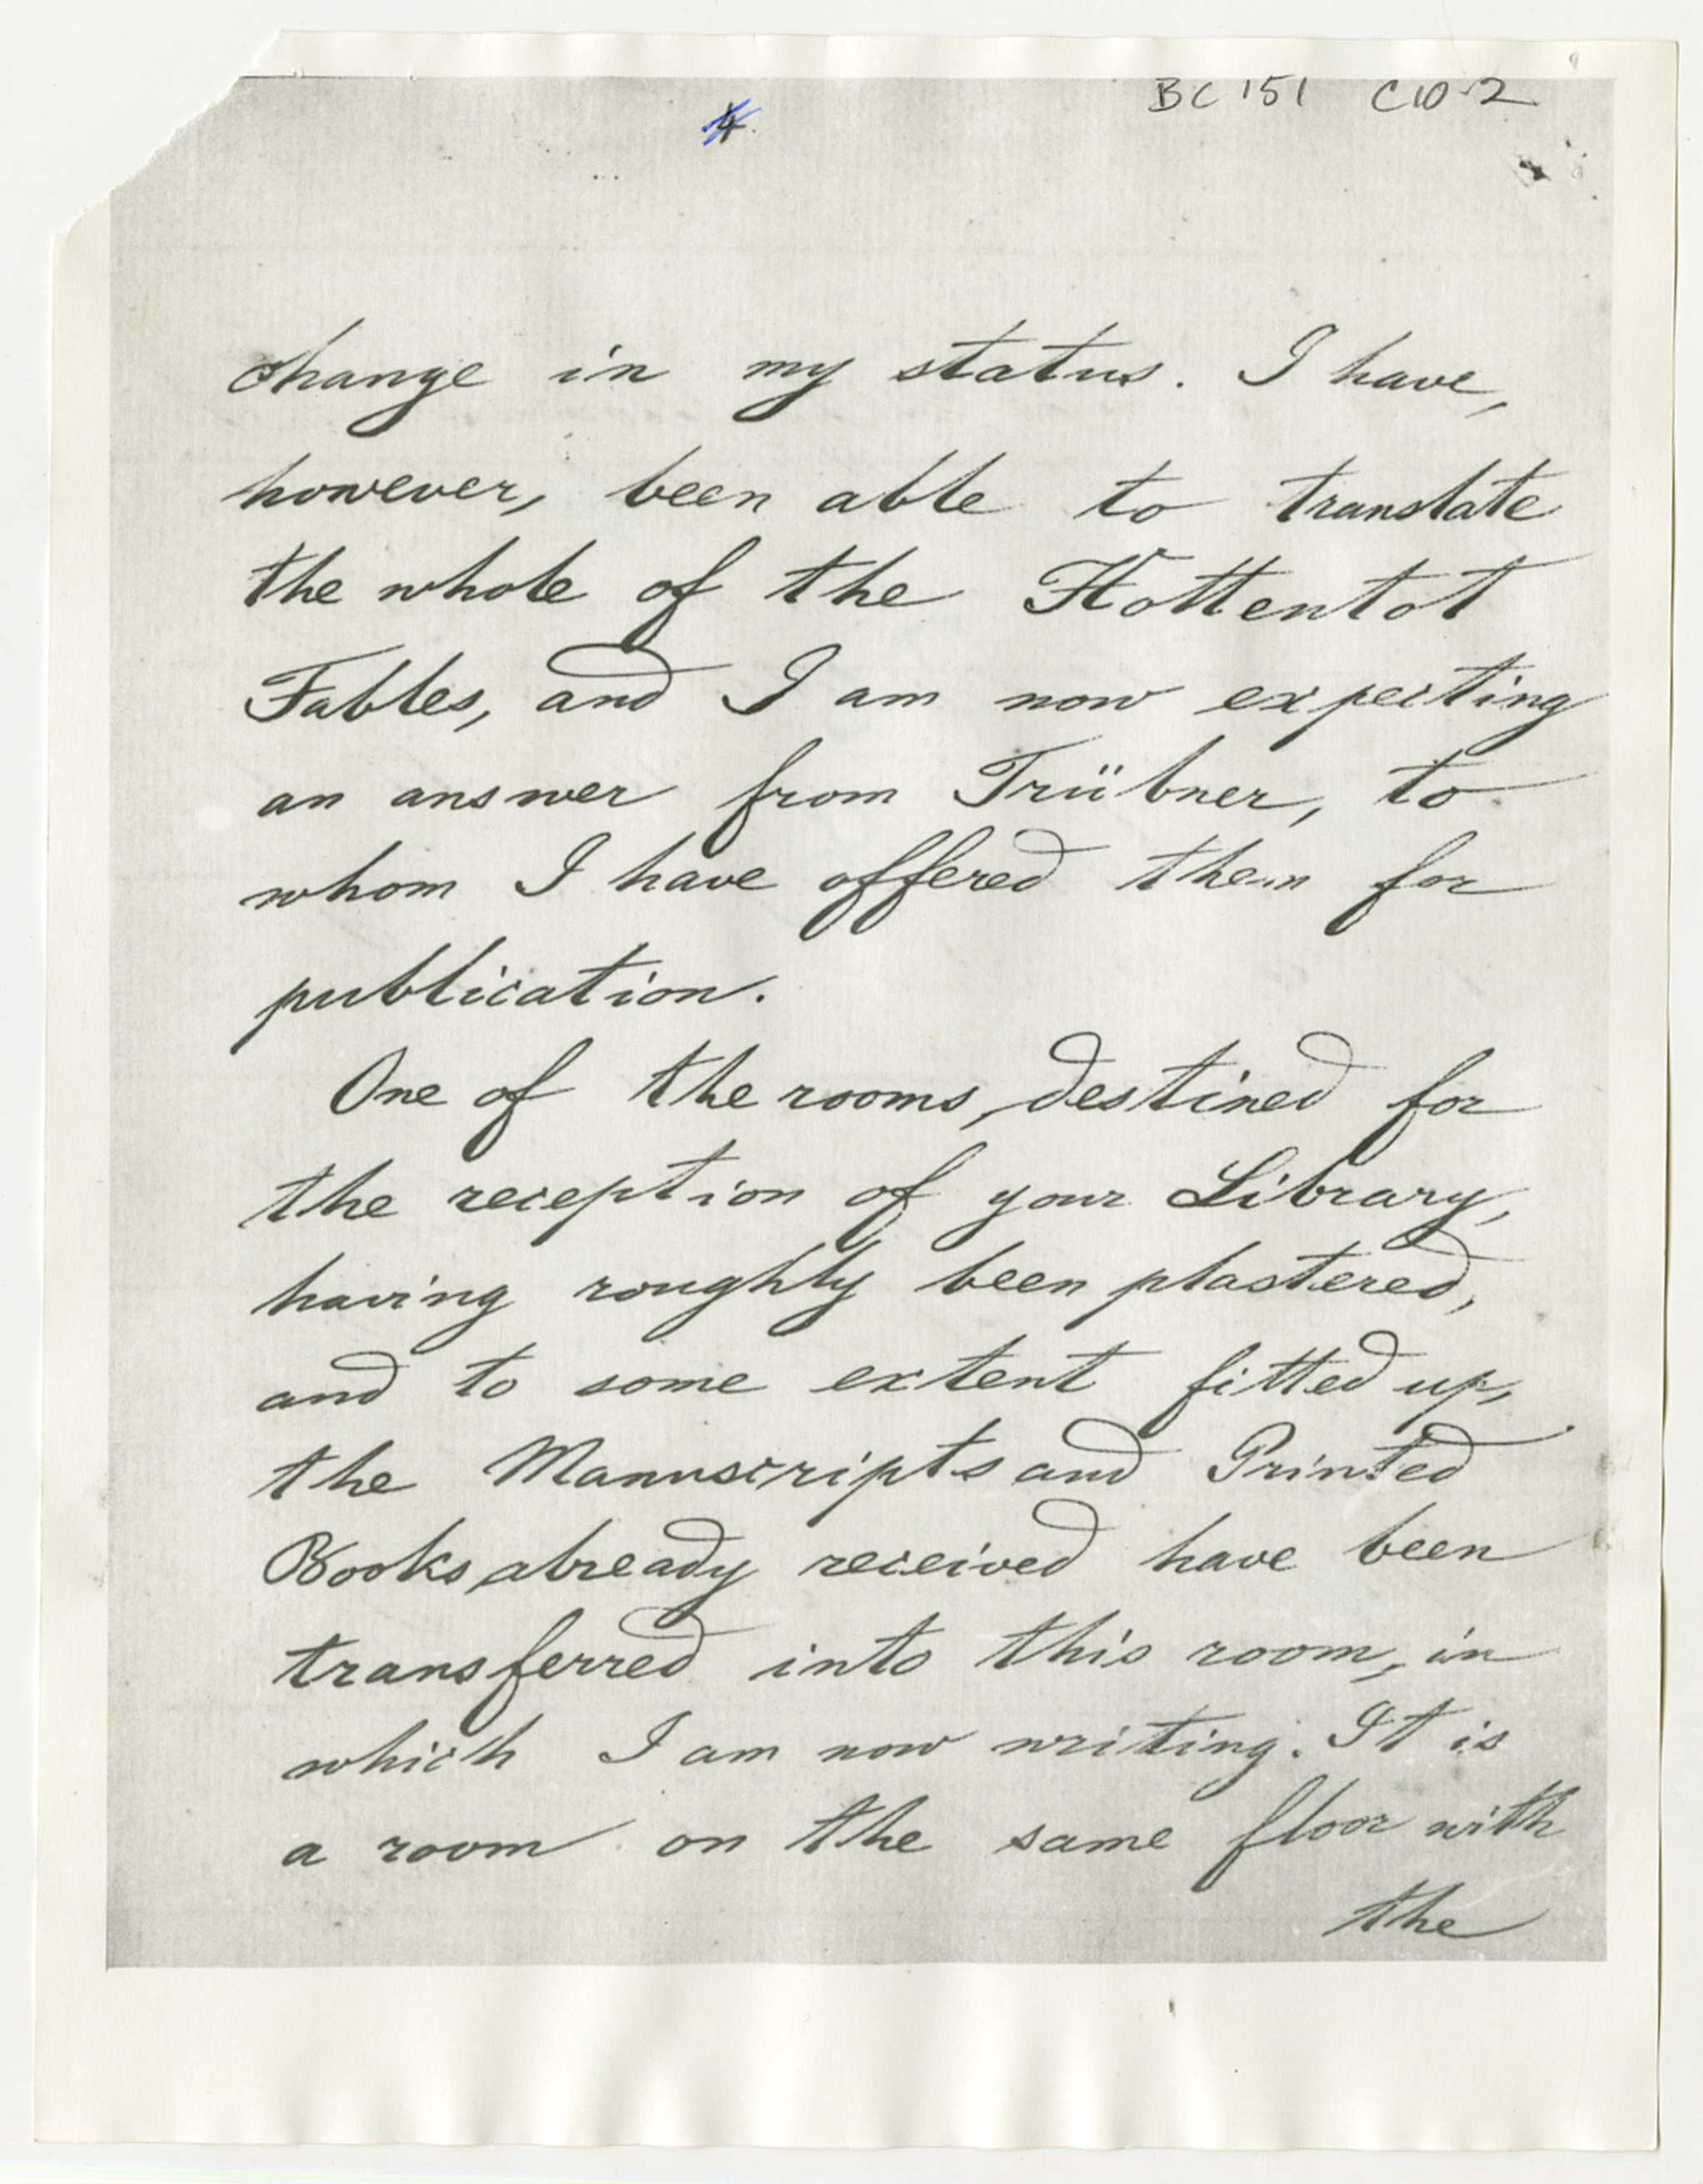 BC 151 C10.2
4
change in my status. I have,
however, been able to translate
the whole of the Hottentot
Fables, and I am now expecting
an answer from Trübner, to
whom I have offered them for
publication.
One of the rooms, destined for
the reception of your Library,
having roughly been plastered,
and to some extent fitted up,
the Manuscripts and Printed
Books already received have been
transferred into this room, in
which I am now writing. It is
a room on the same floor with
the